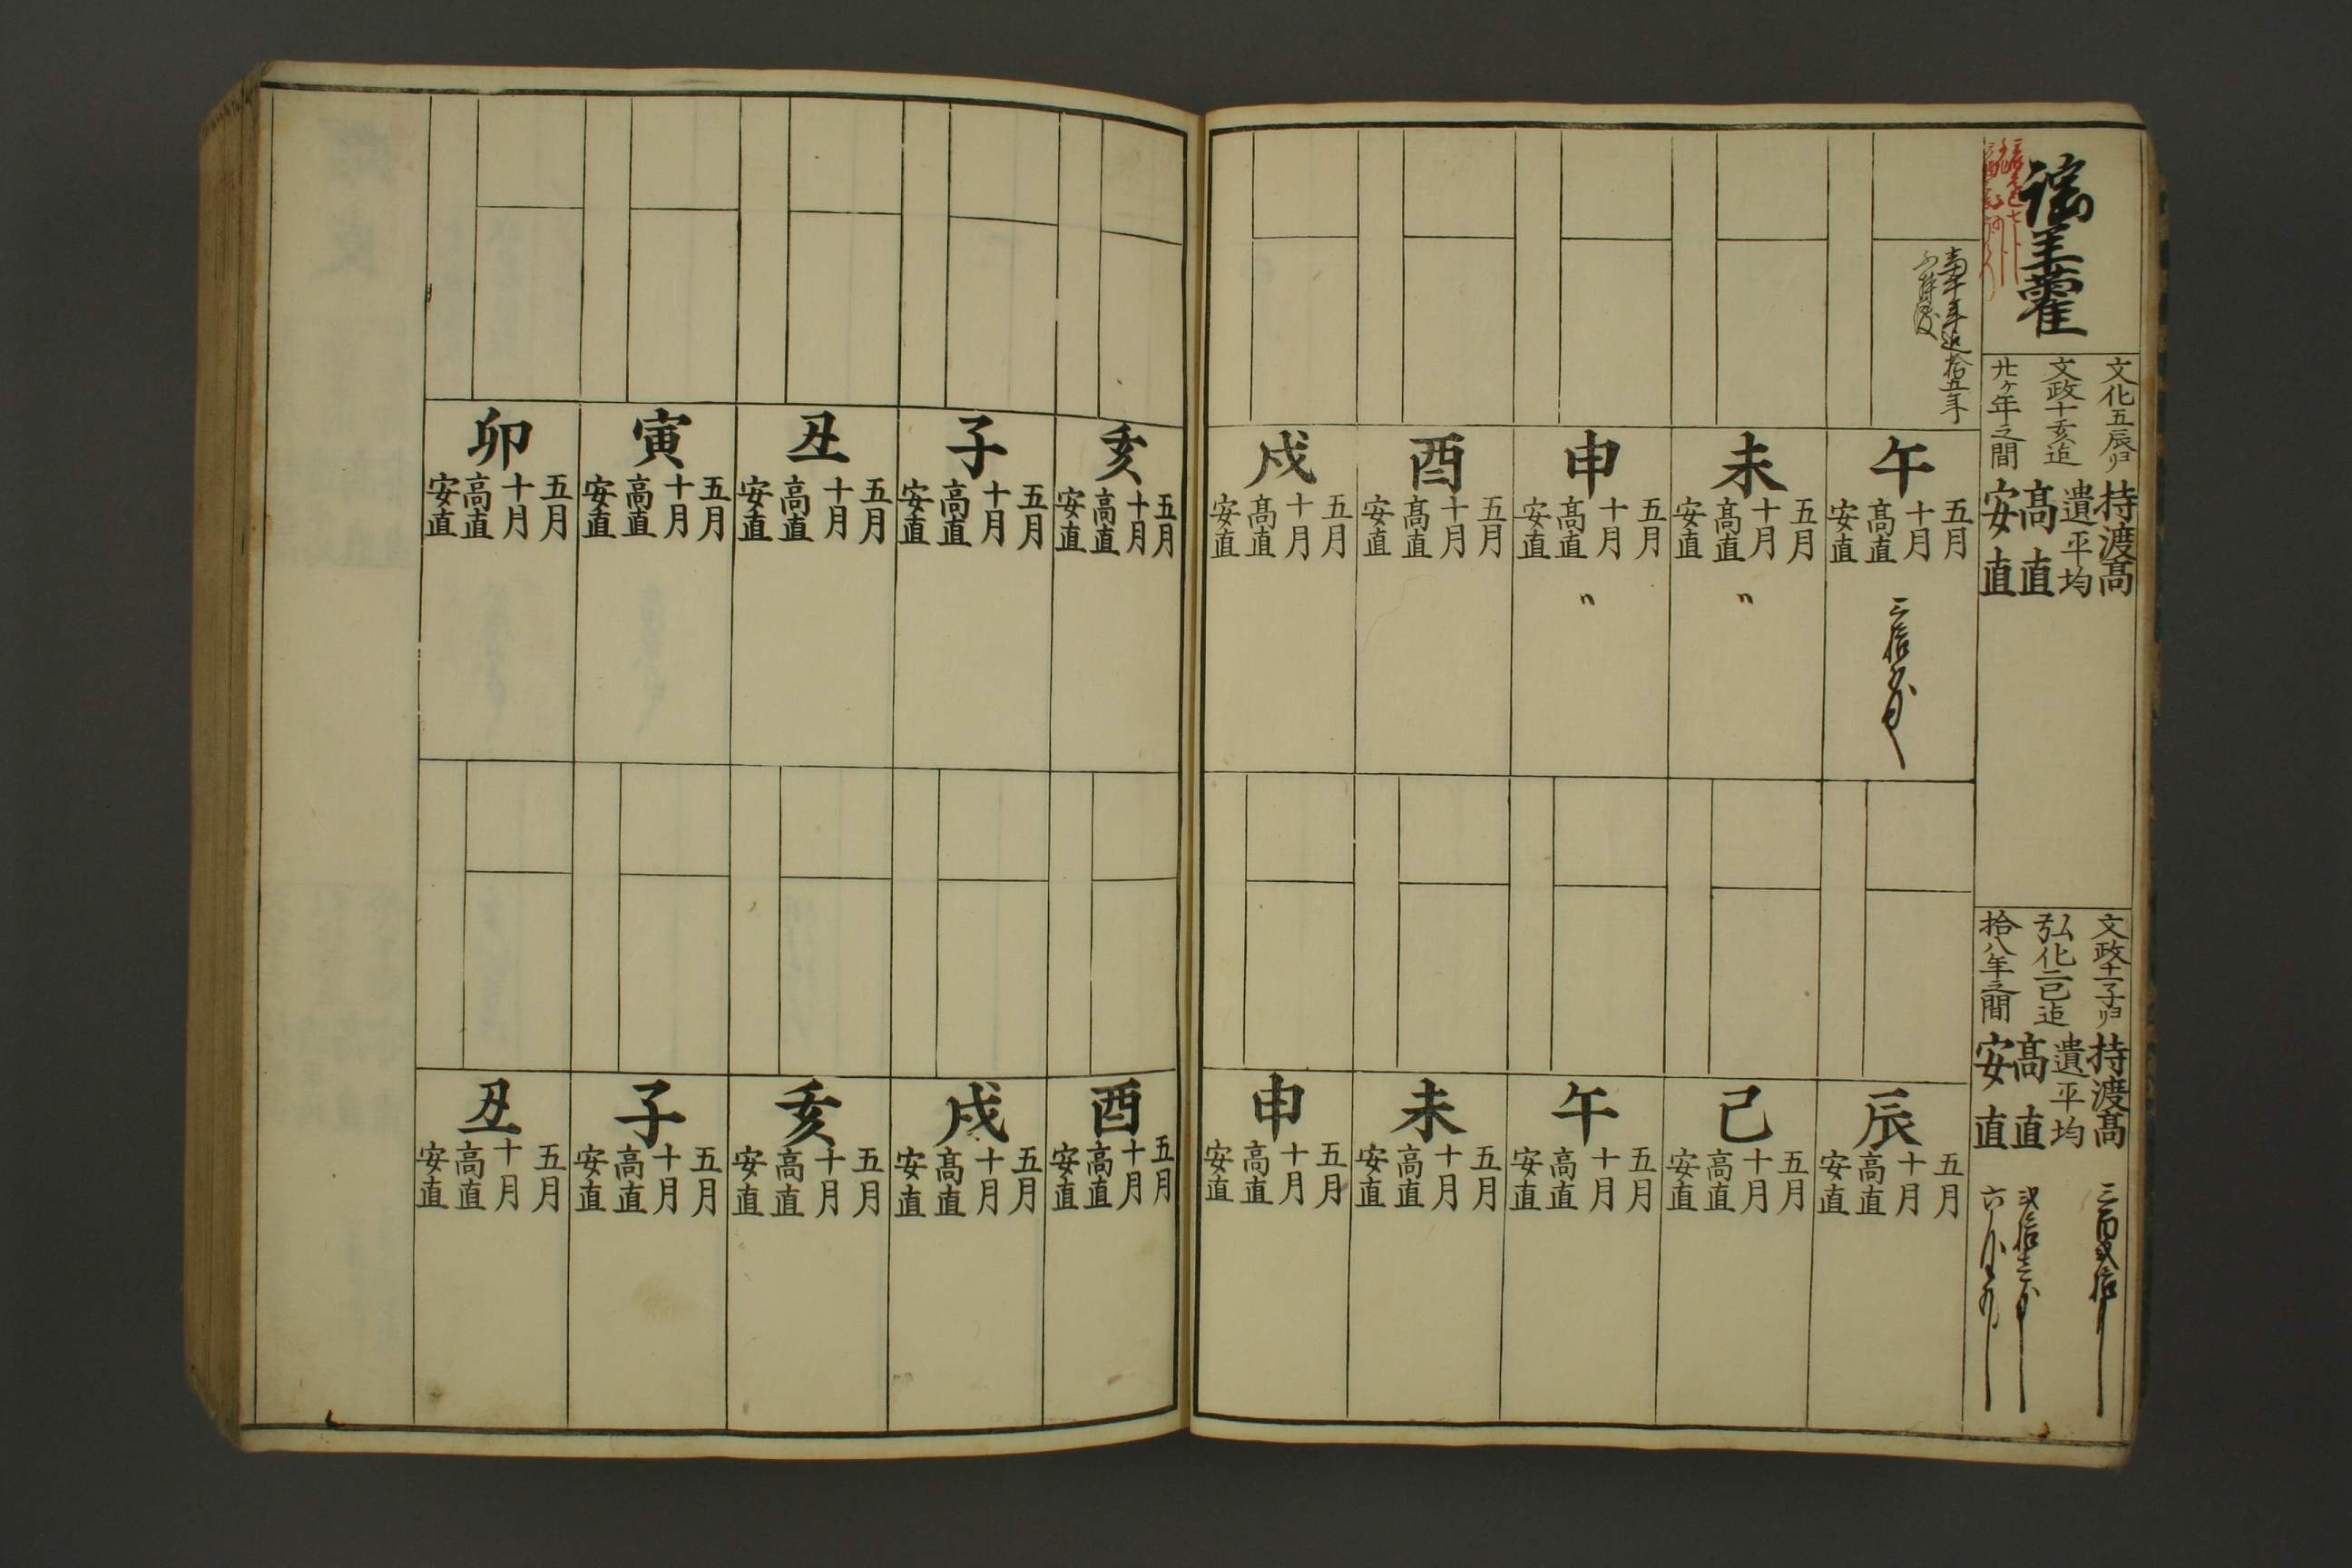 淫羊藿
文化五辰ゟ
文政十亥迠
廿ケ年之間
持渡高
遣平均
高直
安直
文政十一子ゟ
弘化二巳迠
拾八年之間
持渡高
遣平均
高直
安直
午
五月
十月
高直
安直
未
五月
十月
高直
安直
〃
申
五月
十月
高直
安直
〃
酉
五月
十月
高直
安直
戌
五月
十月
高直
安直
辰
五月
十月
高直
安直
己
五月
十月
高直
安直
午
五月
十月
高直
安直
未
五月
十月
高直
安直
申
五月
十月
高直
安直
亥
五月
十月
高直
安直
子
五月
十月
高直
安直
丑
五月
十月
高直
安直
寅
五月
十月
高直
安直
卯
五月
十月
高直
安直
酉
五月
十月
高直
安直
戌
五月
十月
高直
安直
亥
五月
十月
高直
安直
子
五月
十月
高直
安直
丑
五月
十月
高直
安直